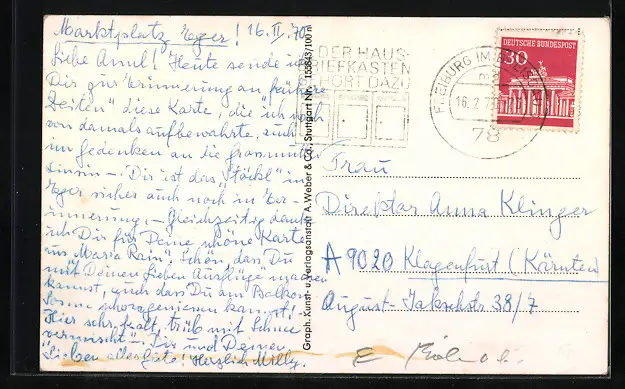 Marktplatz Eger! 16. II. 70
Liebe Annl! Heute sende ich
Dir zur Erinnerung an frühere
Zeiten diese Karte, die ich noch
von damals aufbewahrte, auch
im Gedenken an die
Dir ist das "Stöckl" in
Eger sicher auch noch in Er-
innerung. - Gleichzeitig danke
ich Dir für Deine schöne Karte
aus Maria Rain. Schön, dass Du
mit Deinen Lieben Ausflüge machen
kannst, auch dass Du am Balkon
Sonne kannst!
Hier sehr kalt, trüb mit Schnee
vermischt. - Dir und Deinen
Lieben alles Gute! Herzlich Milly.
Graph. Kunst- u. Verlagsanstalt A. Weber & Co., Stuttgart Nr. 155843/100 n
DER HAUS-
BRIEFKASTEN
GEHÖRT DAZU
FREIBURG IM BREISGAU
16. 2. 7
78
DEUTSCHE BUNDESPOST
30
Frau
Direktor Anna Klinger
A 9020 Klagenfurt (Kärnten)
August-Jakschstr. 38/7